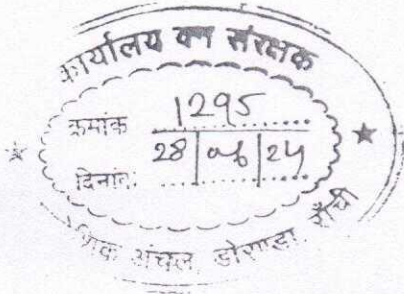 कार्यालय वन संरक्षक
क्रमांक 1295
दिनांक 28/06/24
अंचल, डोराण्डा, राँची